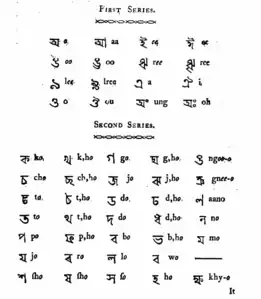 FIRST SERIES.
অ o আ aa ই ee ঈ ee
উ oo ঊ oo ঋ ree ৠ ree
ঌ lree ৡ lree এ a ঐ i
ও o ঔ ou অং ung অঃ oh
SECOND SERIES.
ক ko, খ k,ho গ go. ঘ g,ho. ঙ ngoo-o
চ cho ছ ch,ho জ jo ঝ j,ho ঞ gnee-o
ট to. ঠ t,ho ড do. ঢ d,ho. ণ aano
ত to থ t,ho দ do ধ d,ho. ন no
প po ফ p,ho ব bo ভ b,ho ম mo
য jo র ro ল lo ব wo
শ sho ষ sho স so হ ho ক্ষ khy-o
It